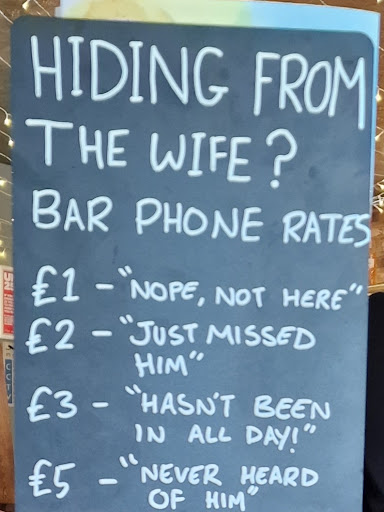 HIDING FROM
THE WIFE?
BAR PHONE RATES
£1 - "NOPE, NOT HERE"
£2 - "JUST MISSED
HIM"
£3 - "HASN'T BEEN
IN ALL DAY!"
£5 - "NEVER HEARD
OF HIM"
CCTV